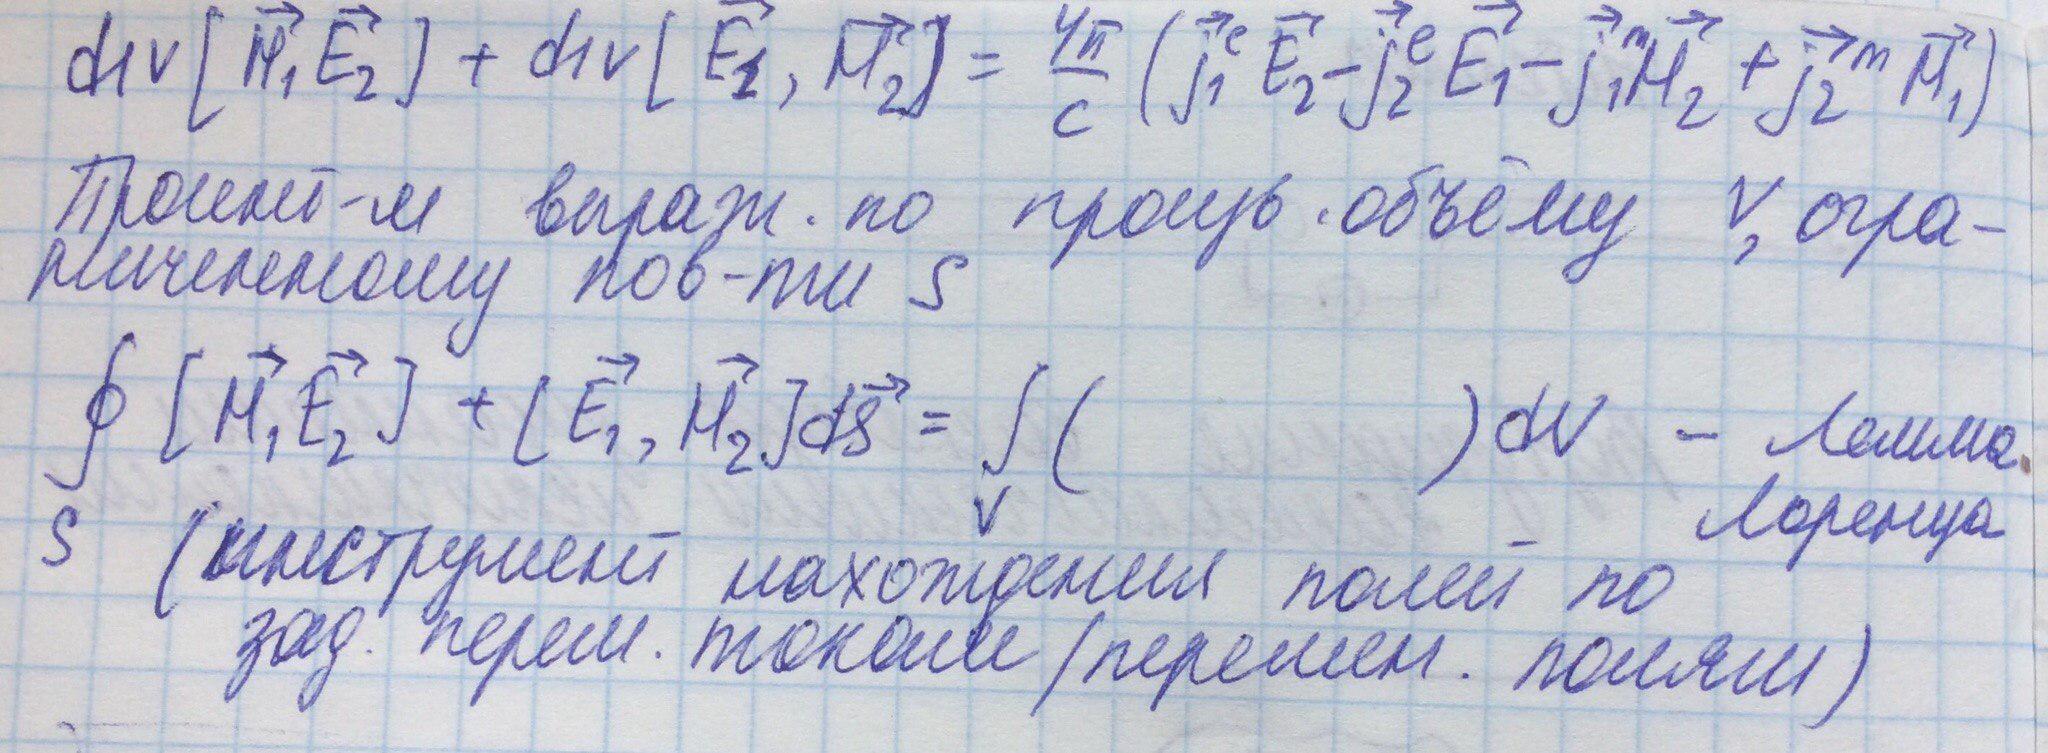 div[H⃗₁E⃗₂] + div[E⃗₁, H⃗₂] = 4π/c (j⃗₁ᵉ E⃗₂ - j⃗₂ᵉ E⃗₁ - j⃗₁ᵐ H⃗₂ + j⃗₂ᵐ H⃗₁)
Проинт-м выраж. по произв. объёму V, огра-
ниченному пов-ти S
∮ [H⃗₁E⃗₂] + [E⃗₁, H⃗₂]dS⃗ = ∫ ( )dV - Лемма
S V Лоренца
(инструмент нахождения полей по
зад. перем. токам/перемен. полям)